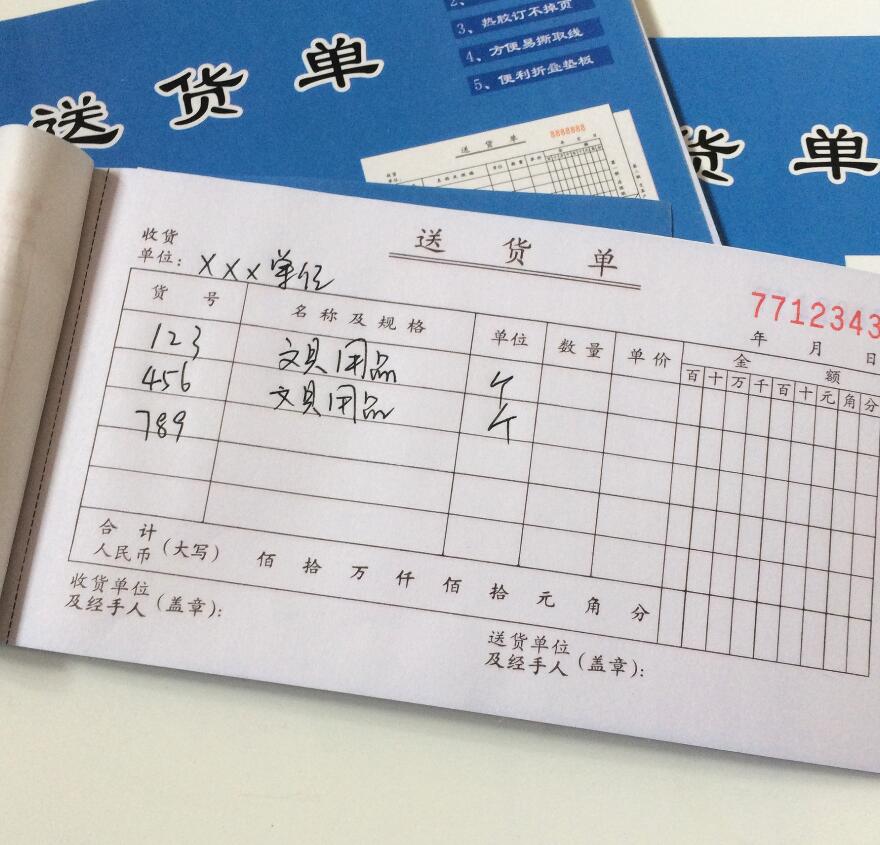 2、
3、热胶订不掉页
4、方便易撕取线
5、便利折叠垫板
送货单
货单
送货单
8888888
送货单
收货
单位：XXX单位
7712343
年 月 日
货号 名称及规格 单位 数量 单价 金额
百 十 万 千 百 十 元 角 分
123 文具用品 个
456 文具用品 个
789
合计
人民币（大写） 佰 拾 万 仟 佰 拾 元 角 分
收货单位
及经手人（盖章）：
送货单位
及经手人（盖章）：